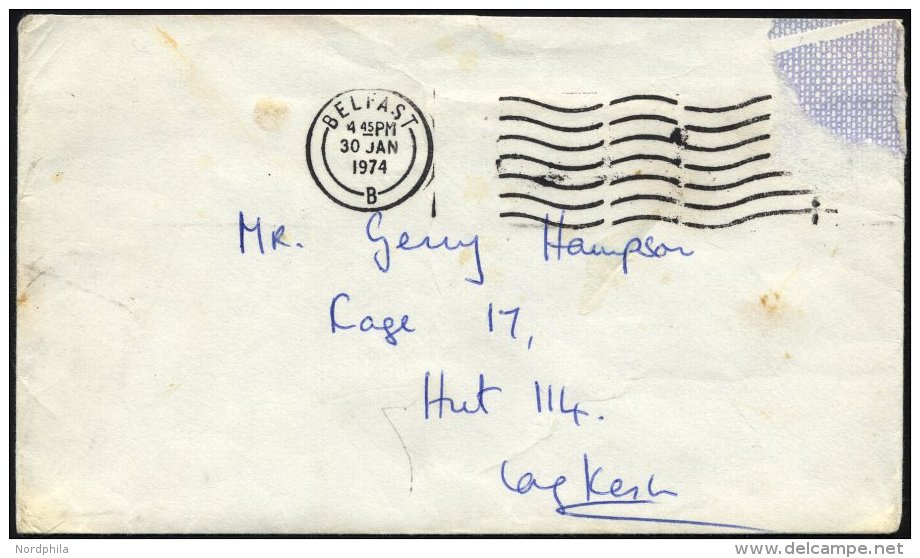 BELFAST
4 45PM
30 JAN
1974
B
Mr. Gerry Hampson
Cage 17,
Hut 114.
Long Kesh
Nordphila
delcampe.net